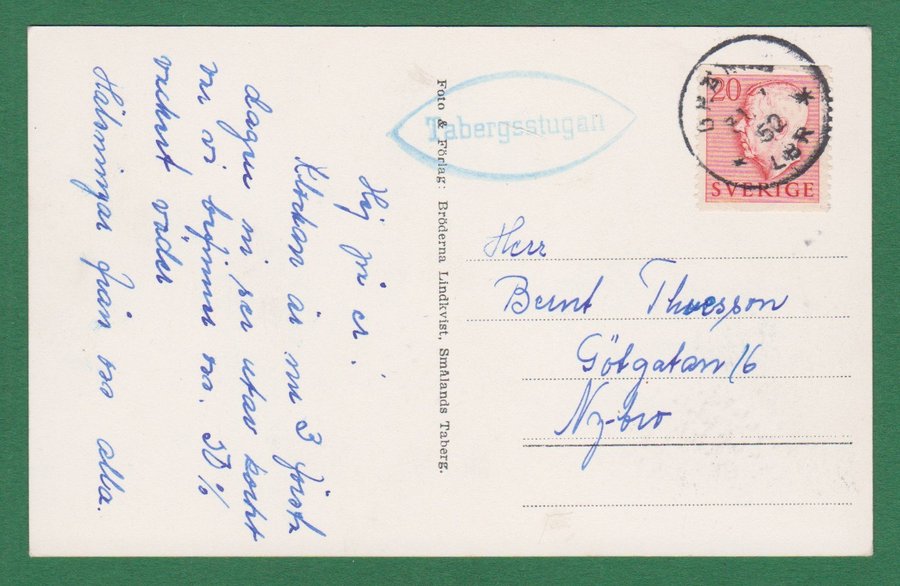 Hej på er!
Klockan är nu 3 första
dagen ni ser utav kortet
var vi befinner oss. 50%
vackert väder
Hälsningar från oss alla.
Foto & Förlag: Bröderna Lindkvist, Smålands Taberg.
Tabergsstugan
20
SVERIGE
52
LBR
Herr
Bernt Thuresson
Götgatan 16
Nybro